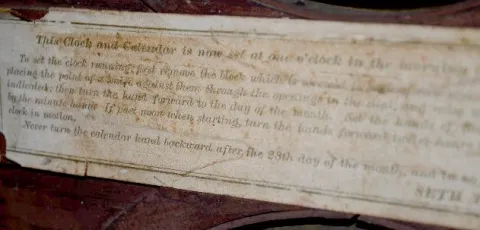 This Clock and Calendar is now set at one o'clock in the morning
To set the clock running, first remove the block which is
placing the point of a knife against them through the openings in the
indicated; then turn the hand forward to the day of the month. Set the
by the minute hand. If past noon when starting, turn the hands forward
clock in motion.
Never turn the calendar hand backward after the 28th day of the month, and
SETH